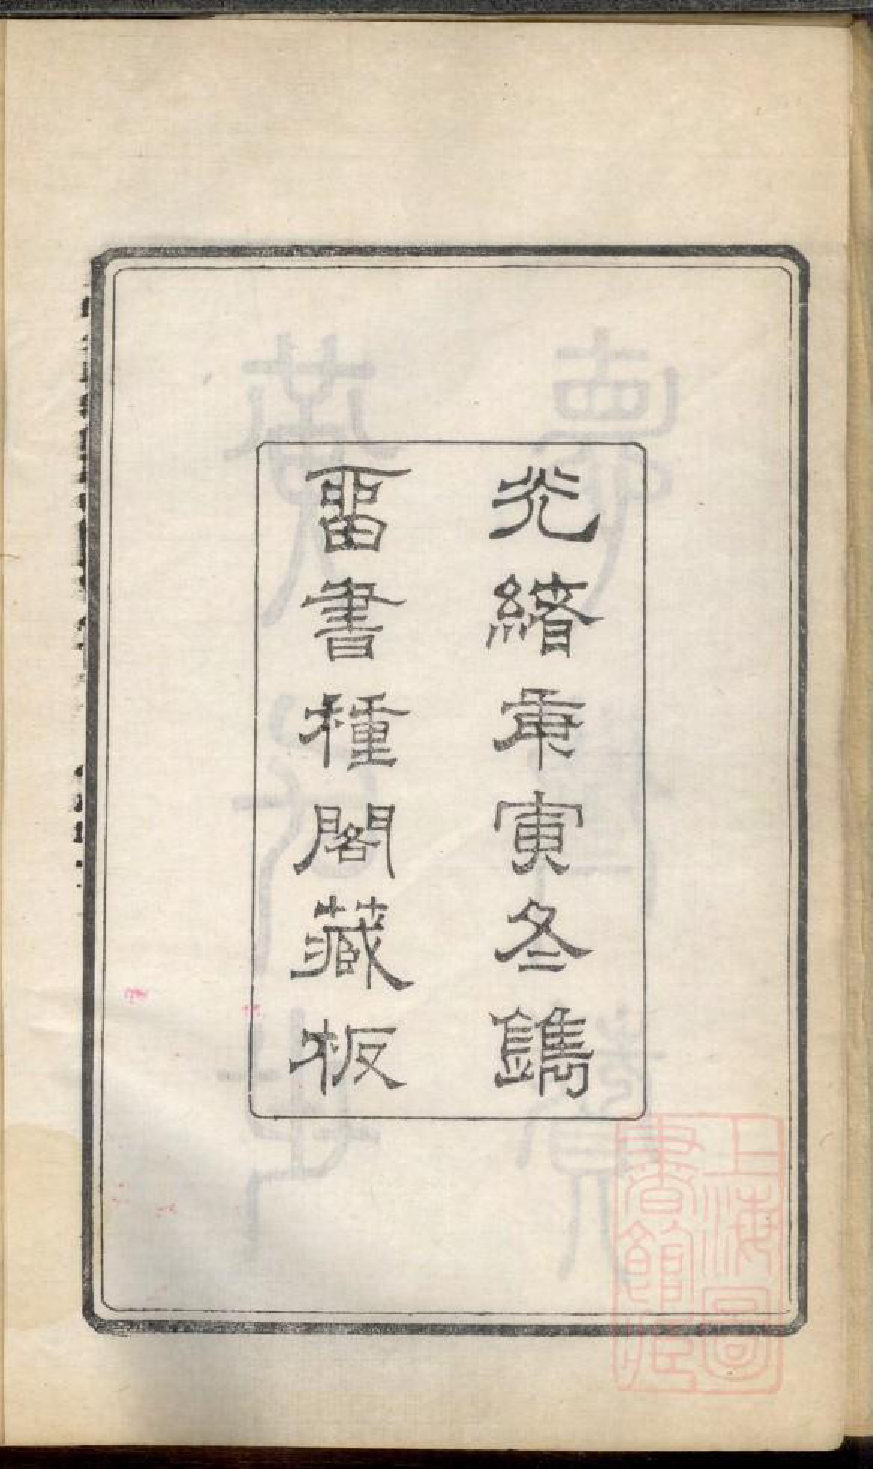 光緒庚寅冬鐫
畱書種閣藏板
上海圖
書館藏